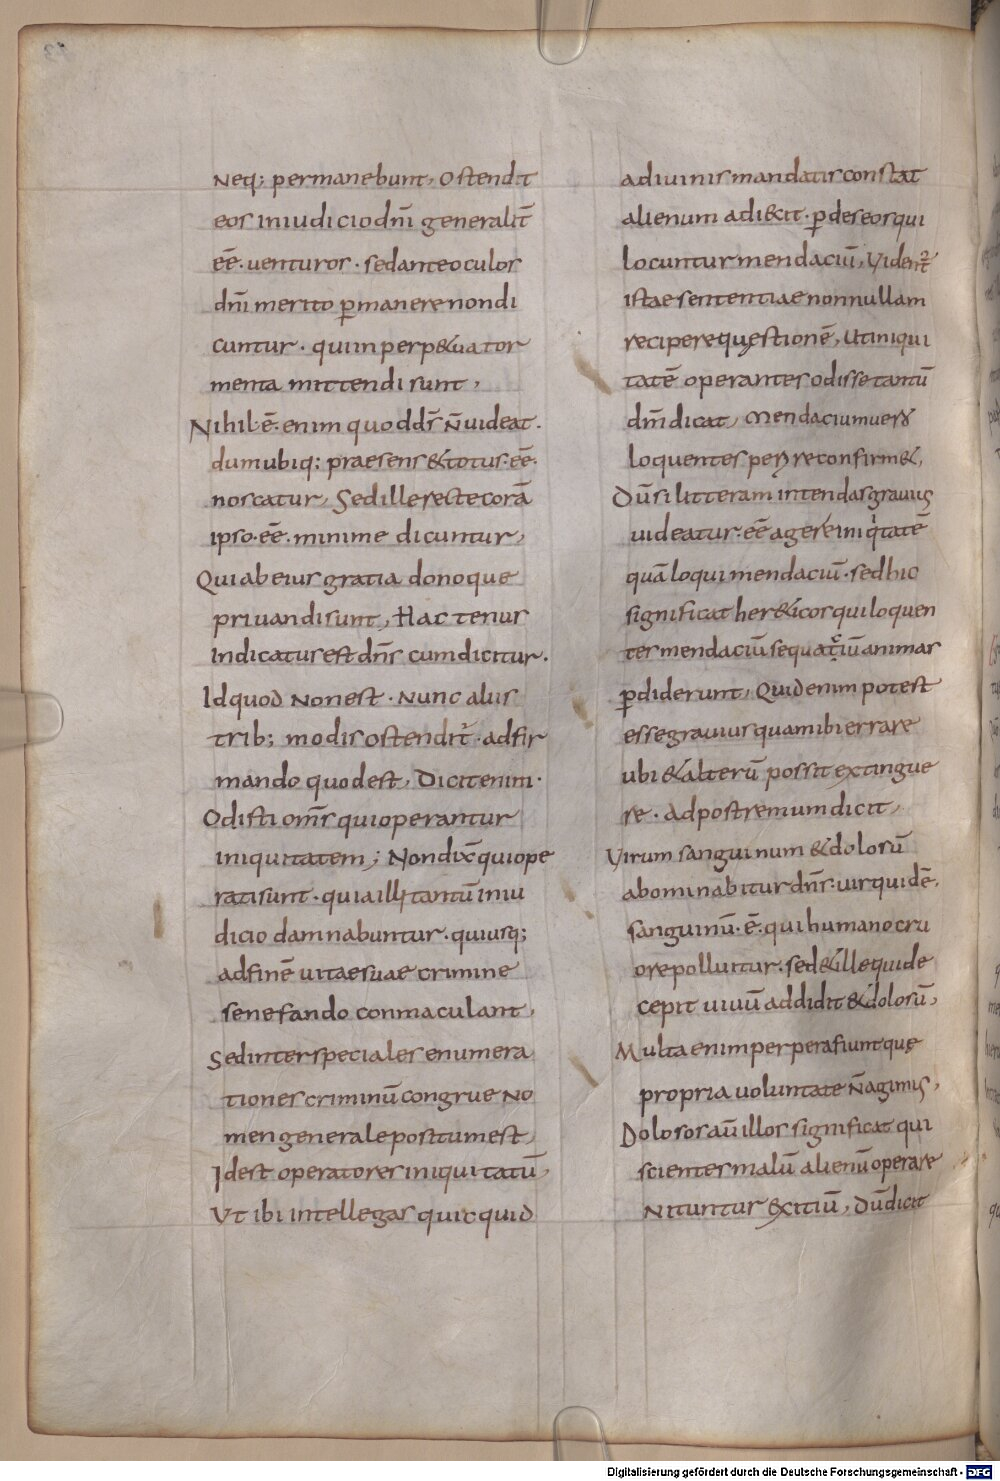 Neq; permanebunt, Ostendit
eos iniudicio dn̄i generalit̄
eē. uenturos. sed ante oculos
dn̄i merito p̱manere nondi
cuntur. qui inperp&ua tor
menta mittendi sunt,
Nihil. ē. enim quod dr̄ n̄ uideat.
dum ubiq; praesens & totus. eē.
noscatur, Sed ille recte corā
ipso. eē. minime dicuntur,
Qui ab eius gratia donoque
priuandi sunt, Hactenus
indicatus est dn̄s cum dicitur.
Id quod non est. Nunc aliis
trib; modis ostendit᷒. adfir
mando quod est, Dicit enim.
Odisti om̄s qui operantur
iniquitatem; Non dix̄ qui ope
rati sunt. quia illi tantū iniu
dicio damnabuntur. qui usq;
ad finē uitae suae crimine
se nefando conmaculant,
Sed inter speciales enumera
tiones criminū congrue no
men generale positum est,
Id est operatores iniquitatū,
Ut ibi intellegas quicquid
a diuinis mandatis constat
alienum adi&cit. p̱des eos qui
locuntur mendaciū, Uident᷒
istae sententiae non nullam
recipere questionē, Ut iniqui
tatē operantes odisse tantū
dn̄m dicat, Mendacium uero
loquentes perire confirm&,
Dū si litteram intendas grauius
uideatur. eē agere iniqitatē
quā loqui mendaciū. sed hic
significat her&icos qui loquen
tes mendaciū sequatiū animas
p̱diderunt, Quid enim potest
esse grauius quam ibi errare
ubi & alterū possit extingue
re. ad postremum dicit,
Uirum sanguinum & dolosū
abominabitur dn̄s. uir quidē.
sanguinū. ē. qui humano cru
ore polluitur. sed & ille qui de
cepit uiuū addidit & dolosū,
Multa enim perpera fiunt que
propria uoluntate n̄ agimus,
Dolosos aū illos significat qui
scientes malū alienū operare
nituntur exitiū, Dū dicit
Digitalisierung gefördert durch die Deutsche Forschungsgemeinschaft - DFG